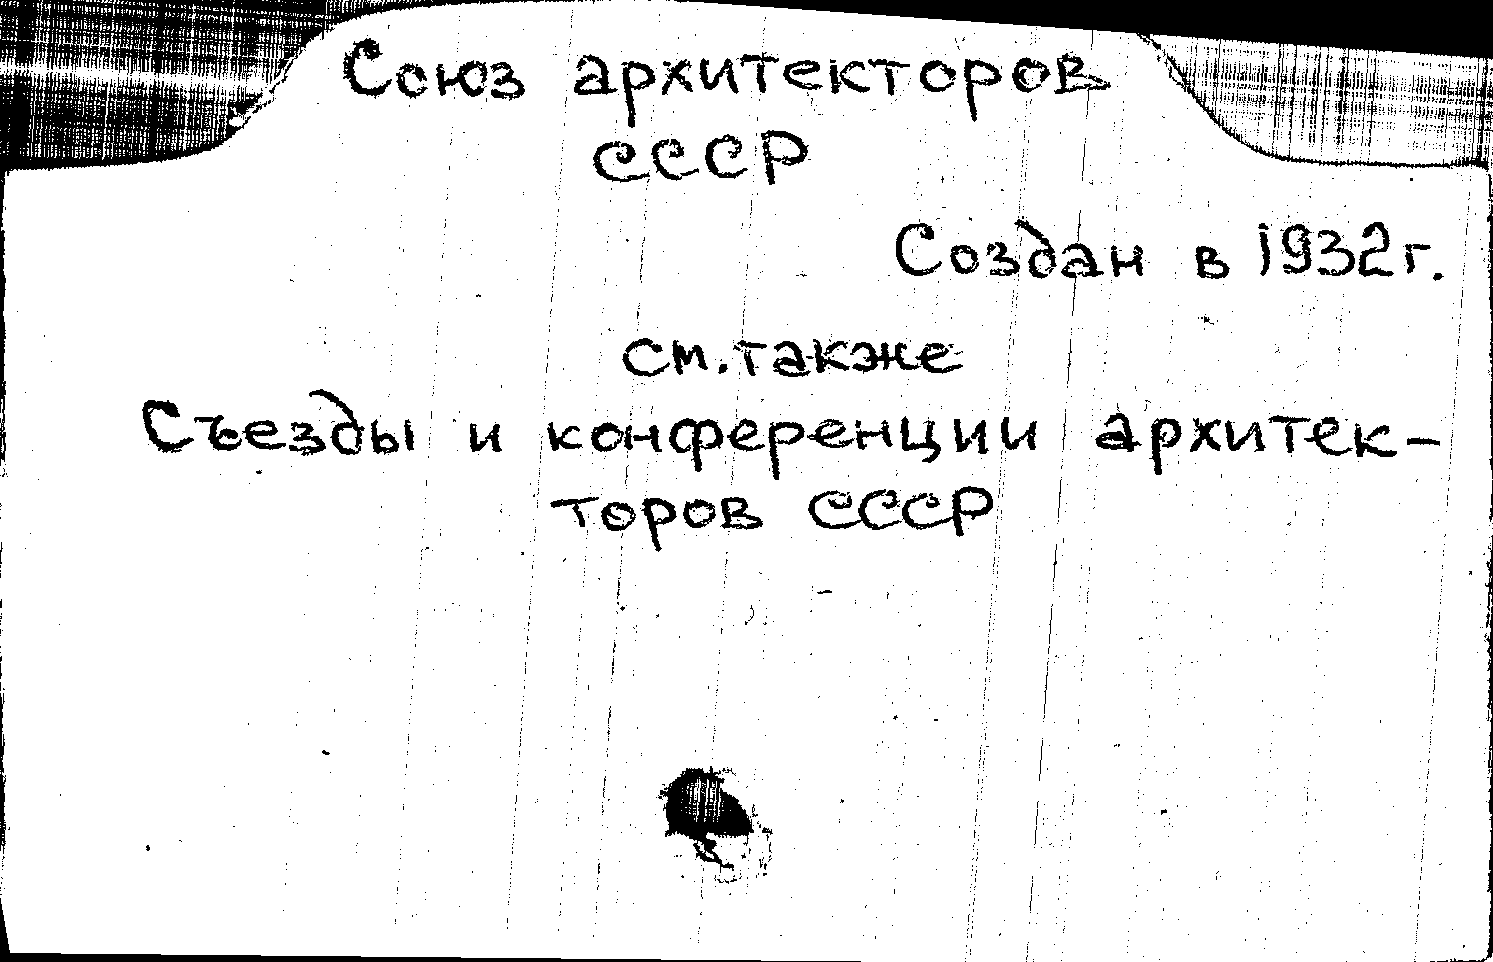 Союз архитекторов
СССР
Создан в 1932г.
см. также
Съезды и конференции архитек-
торов СССР